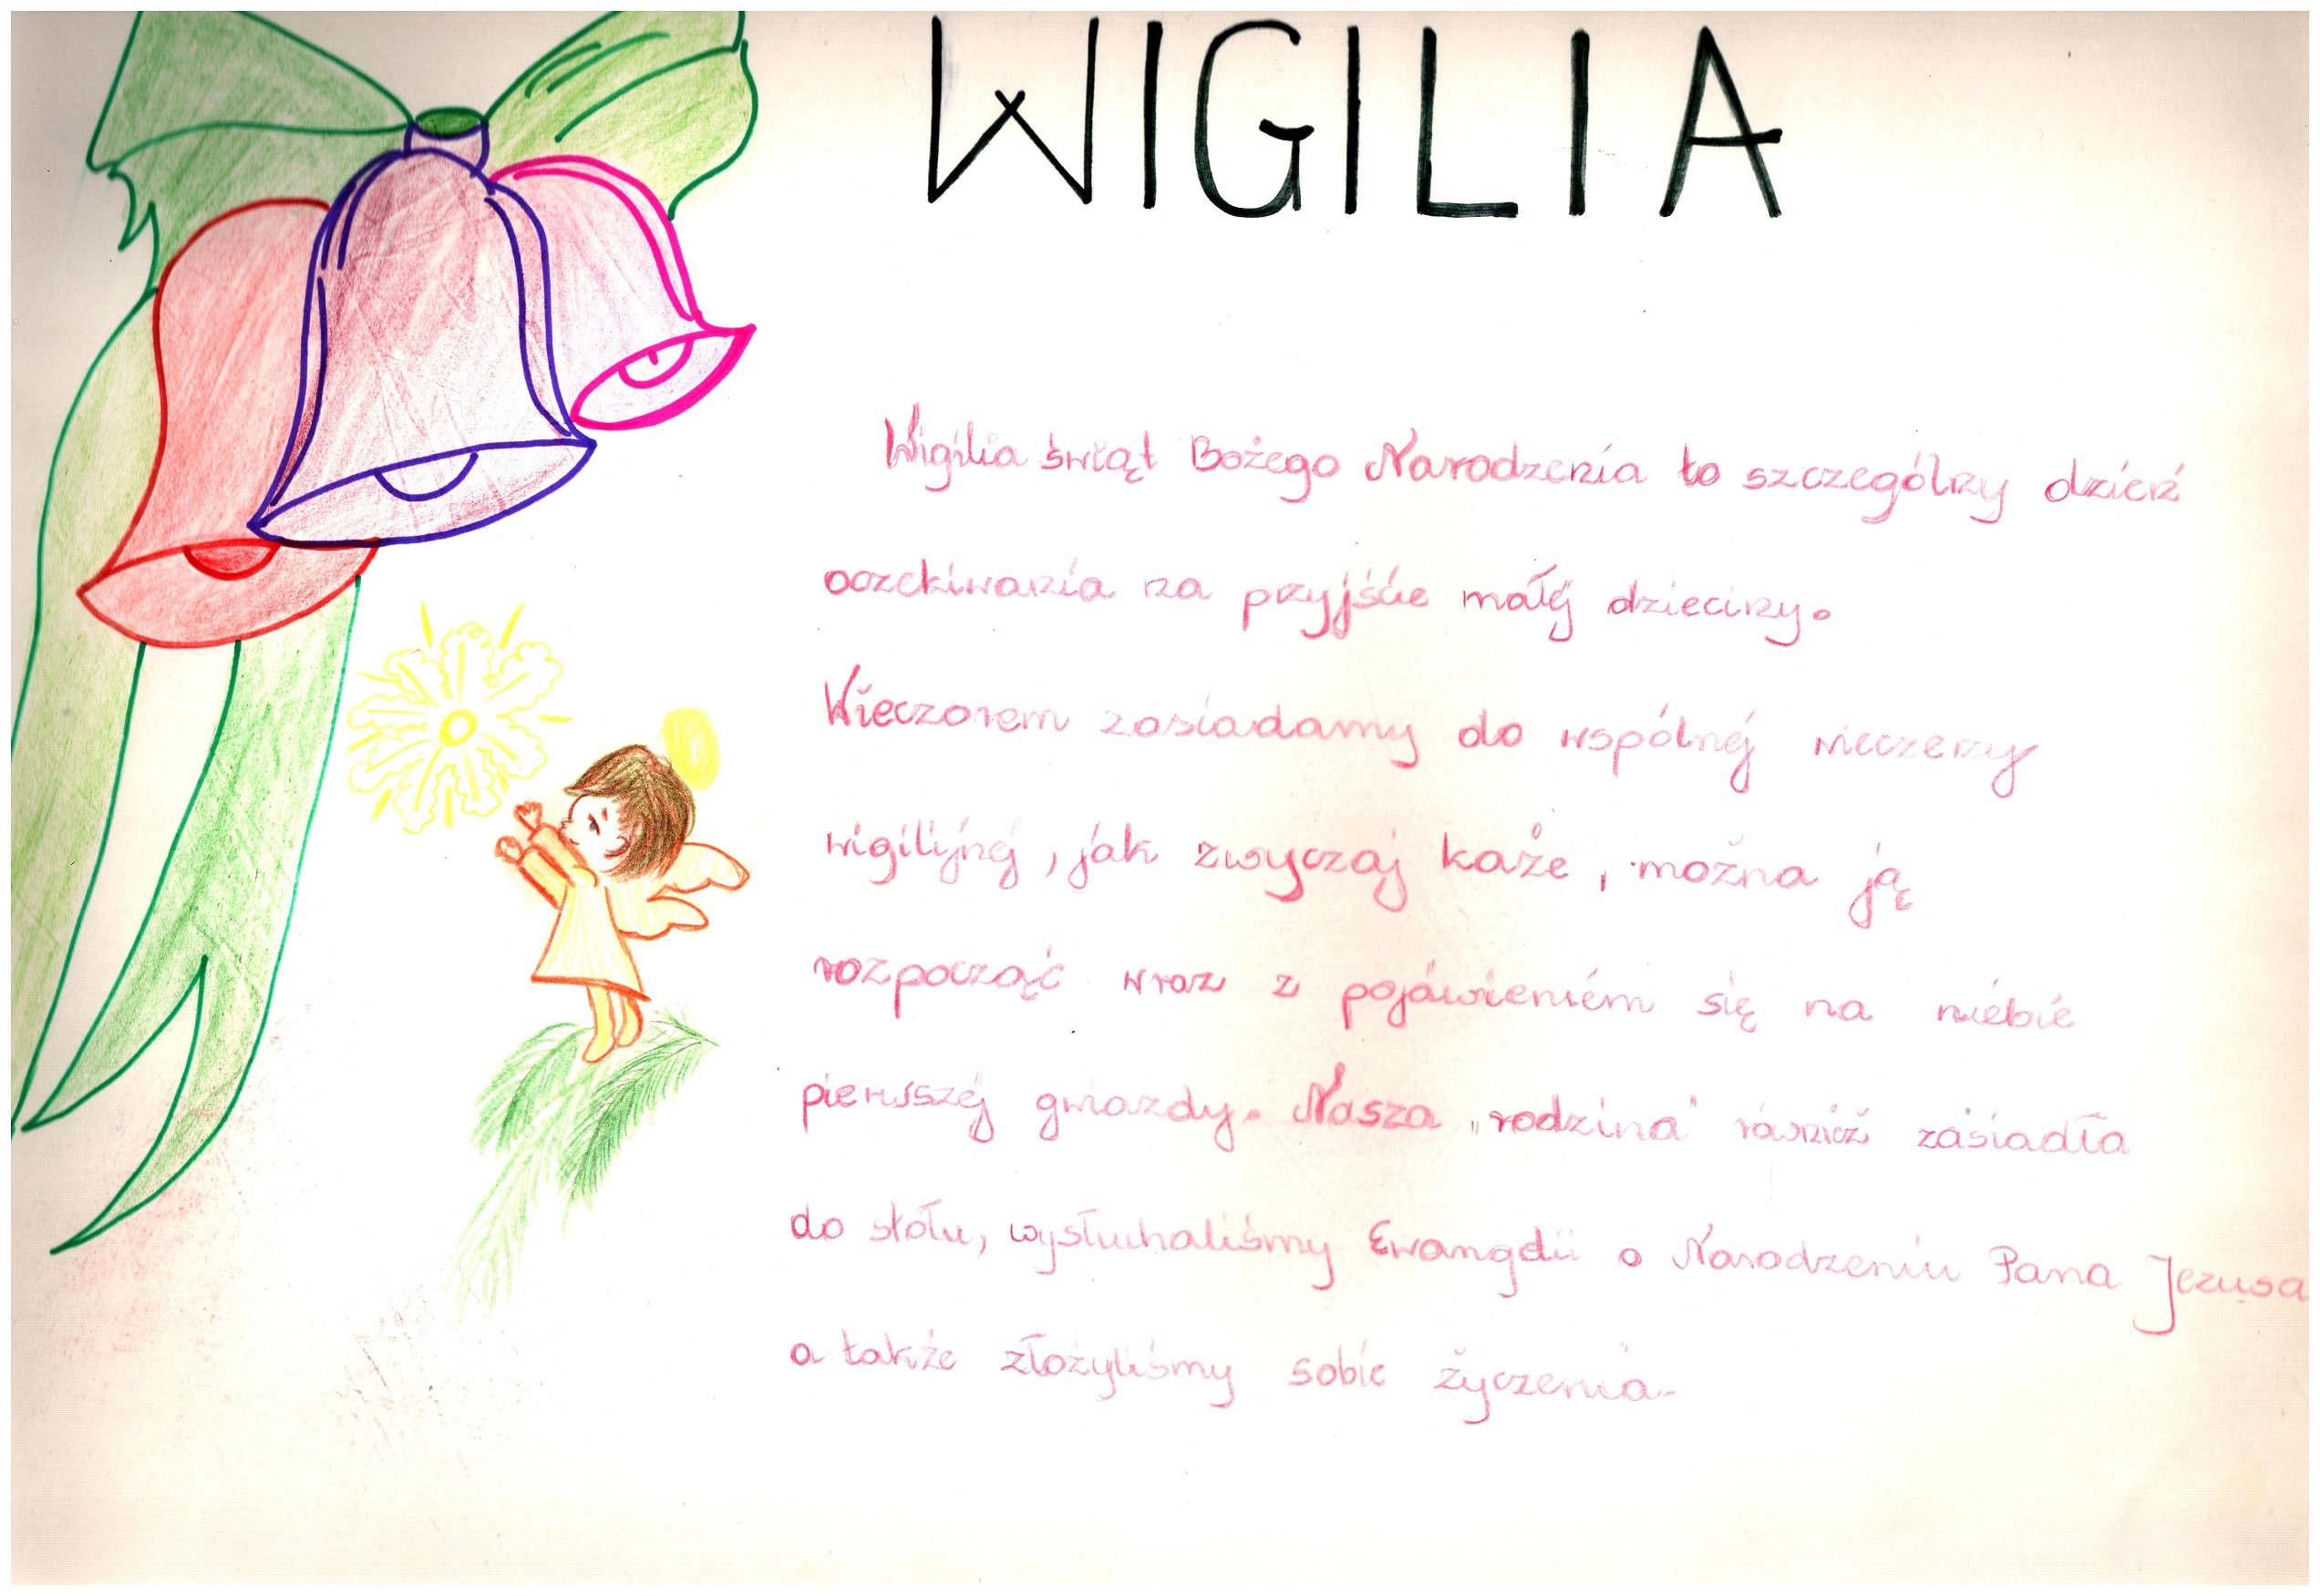 WIGILIA
Wigilia świąt Bożego Narodzenia to szczególny dzień
oczekiwania na przyjście małej dzieciny.
Wieczorem zasiadamy do wspólnej wieczerzy
wigilijnej, jak zwyczaj każe, można ją
rozpocząć wraz z pojawieniem się na niebie
pierwszej gwiazdy. Nasza „rodzina" również zasiadła
do stołu, wysłuchaliśmy Ewangelii o Narodzeniu Pana Jezusa
a także złożyliśmy sobie życzenia.